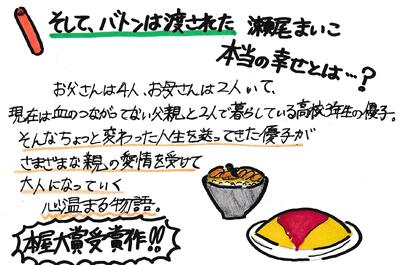 そして、バトンは渡された 瀬尾まいこ
本当の幸せとは…?
お父さんは4人、お母さんは2人いて、
現在は血のつながってない父親と2人で暮らしている高校3年生の優子。
そんなちょっと変わった人生を送ってきた優子が
さまざまな親の愛情を受けて
大人になっていく
心温まる物語。
本屋大賞受賞作!!